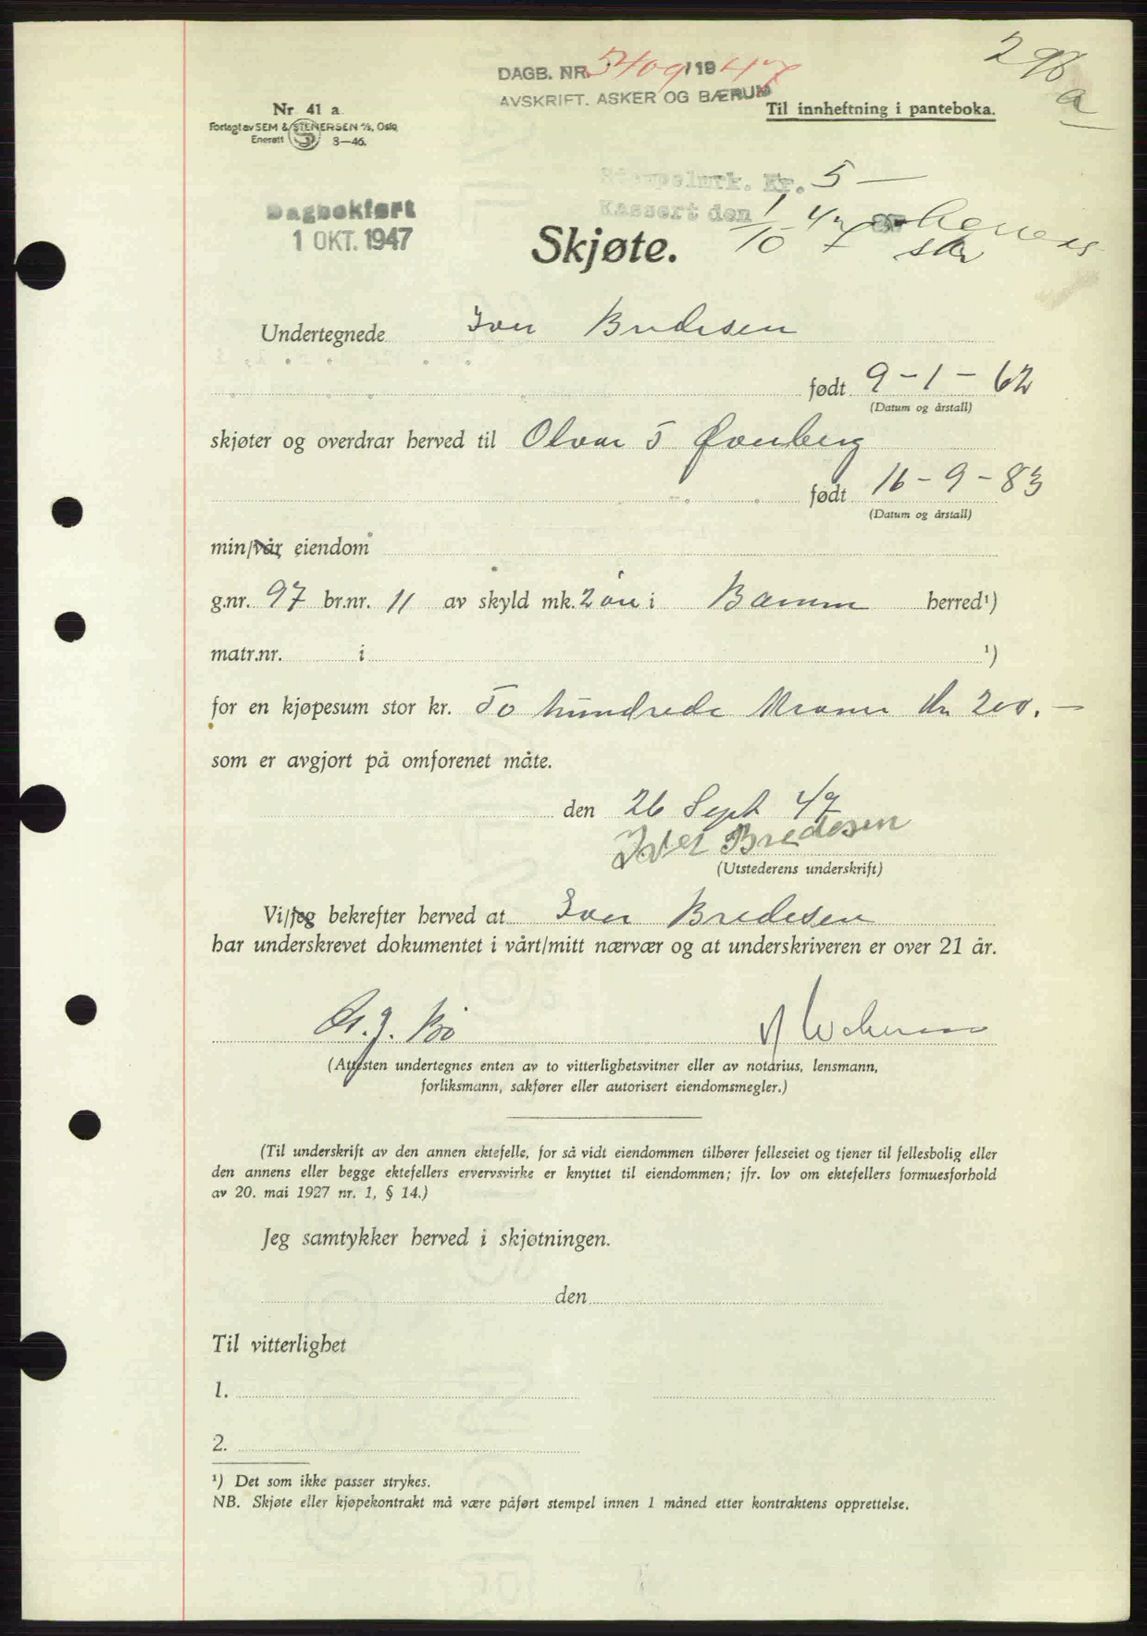 298
a
DAGB. NR. 5409/1947
AVSKRIFT. ASKER OG BÆRUM
Til innheftning i panteboka.
Nr. 41 a
Forlagt av SEM & STENERSEN A/S, Oslo
Enerett 3—46.
Stempelmrk. Kr. 5 —
Kassert den 1/10 47
Dagbokført
1 OKT. 1947
Skjøte.
Undertegnede Iver Bredesen
født 9-1-62
(Datum og årstall)
skjøter og overdrar herved til Olvar T Øverberg
født 16-9-83
(Datum og årstall)
min/vår eiendom
g.nr. 97 br.nr. 11 av skyld mk. 2 øre i Bærum herred¹)
matr.nr. i ¹)
for en kjøpesum stor kr. To hundrede Kroner Kr 200.-
som er avgjort på omforenet måte.
den 26 Sept 47
Iver Bredesen
(Utstederens underskrift)
Vi/jeg bekrefter herved at Iver Bredesen
har underskrevet dokumentet i vårt/mitt nærvær og at underskriveren er over 21 år.
(Attesten undertegnes enten av to vitterlighetsvitner eller av notarius, lensmann,
forliksmann, sakfører eller autorisert eiendomsmegler.)
(Til underskrift av den annen ektefelle, for så vidt eiendommen tilhører felleseiet og tjener til fellesbolig eller
den annens eller begge ektefellers ervervsvirke er knyttet til eiendommen; jfr. lov om ektefellers formuesforhold
av 20. mai 1927 nr. 1, § 14.)
Jeg samtykker herved i skjøtningen.
den
Til vitterlighet
1.
2.
¹) Det som ikke passer strykes.
NB. Skjøte eller kjøpekontrakt må være påført stempel innen 1 måned etter kontraktens opprettelse.